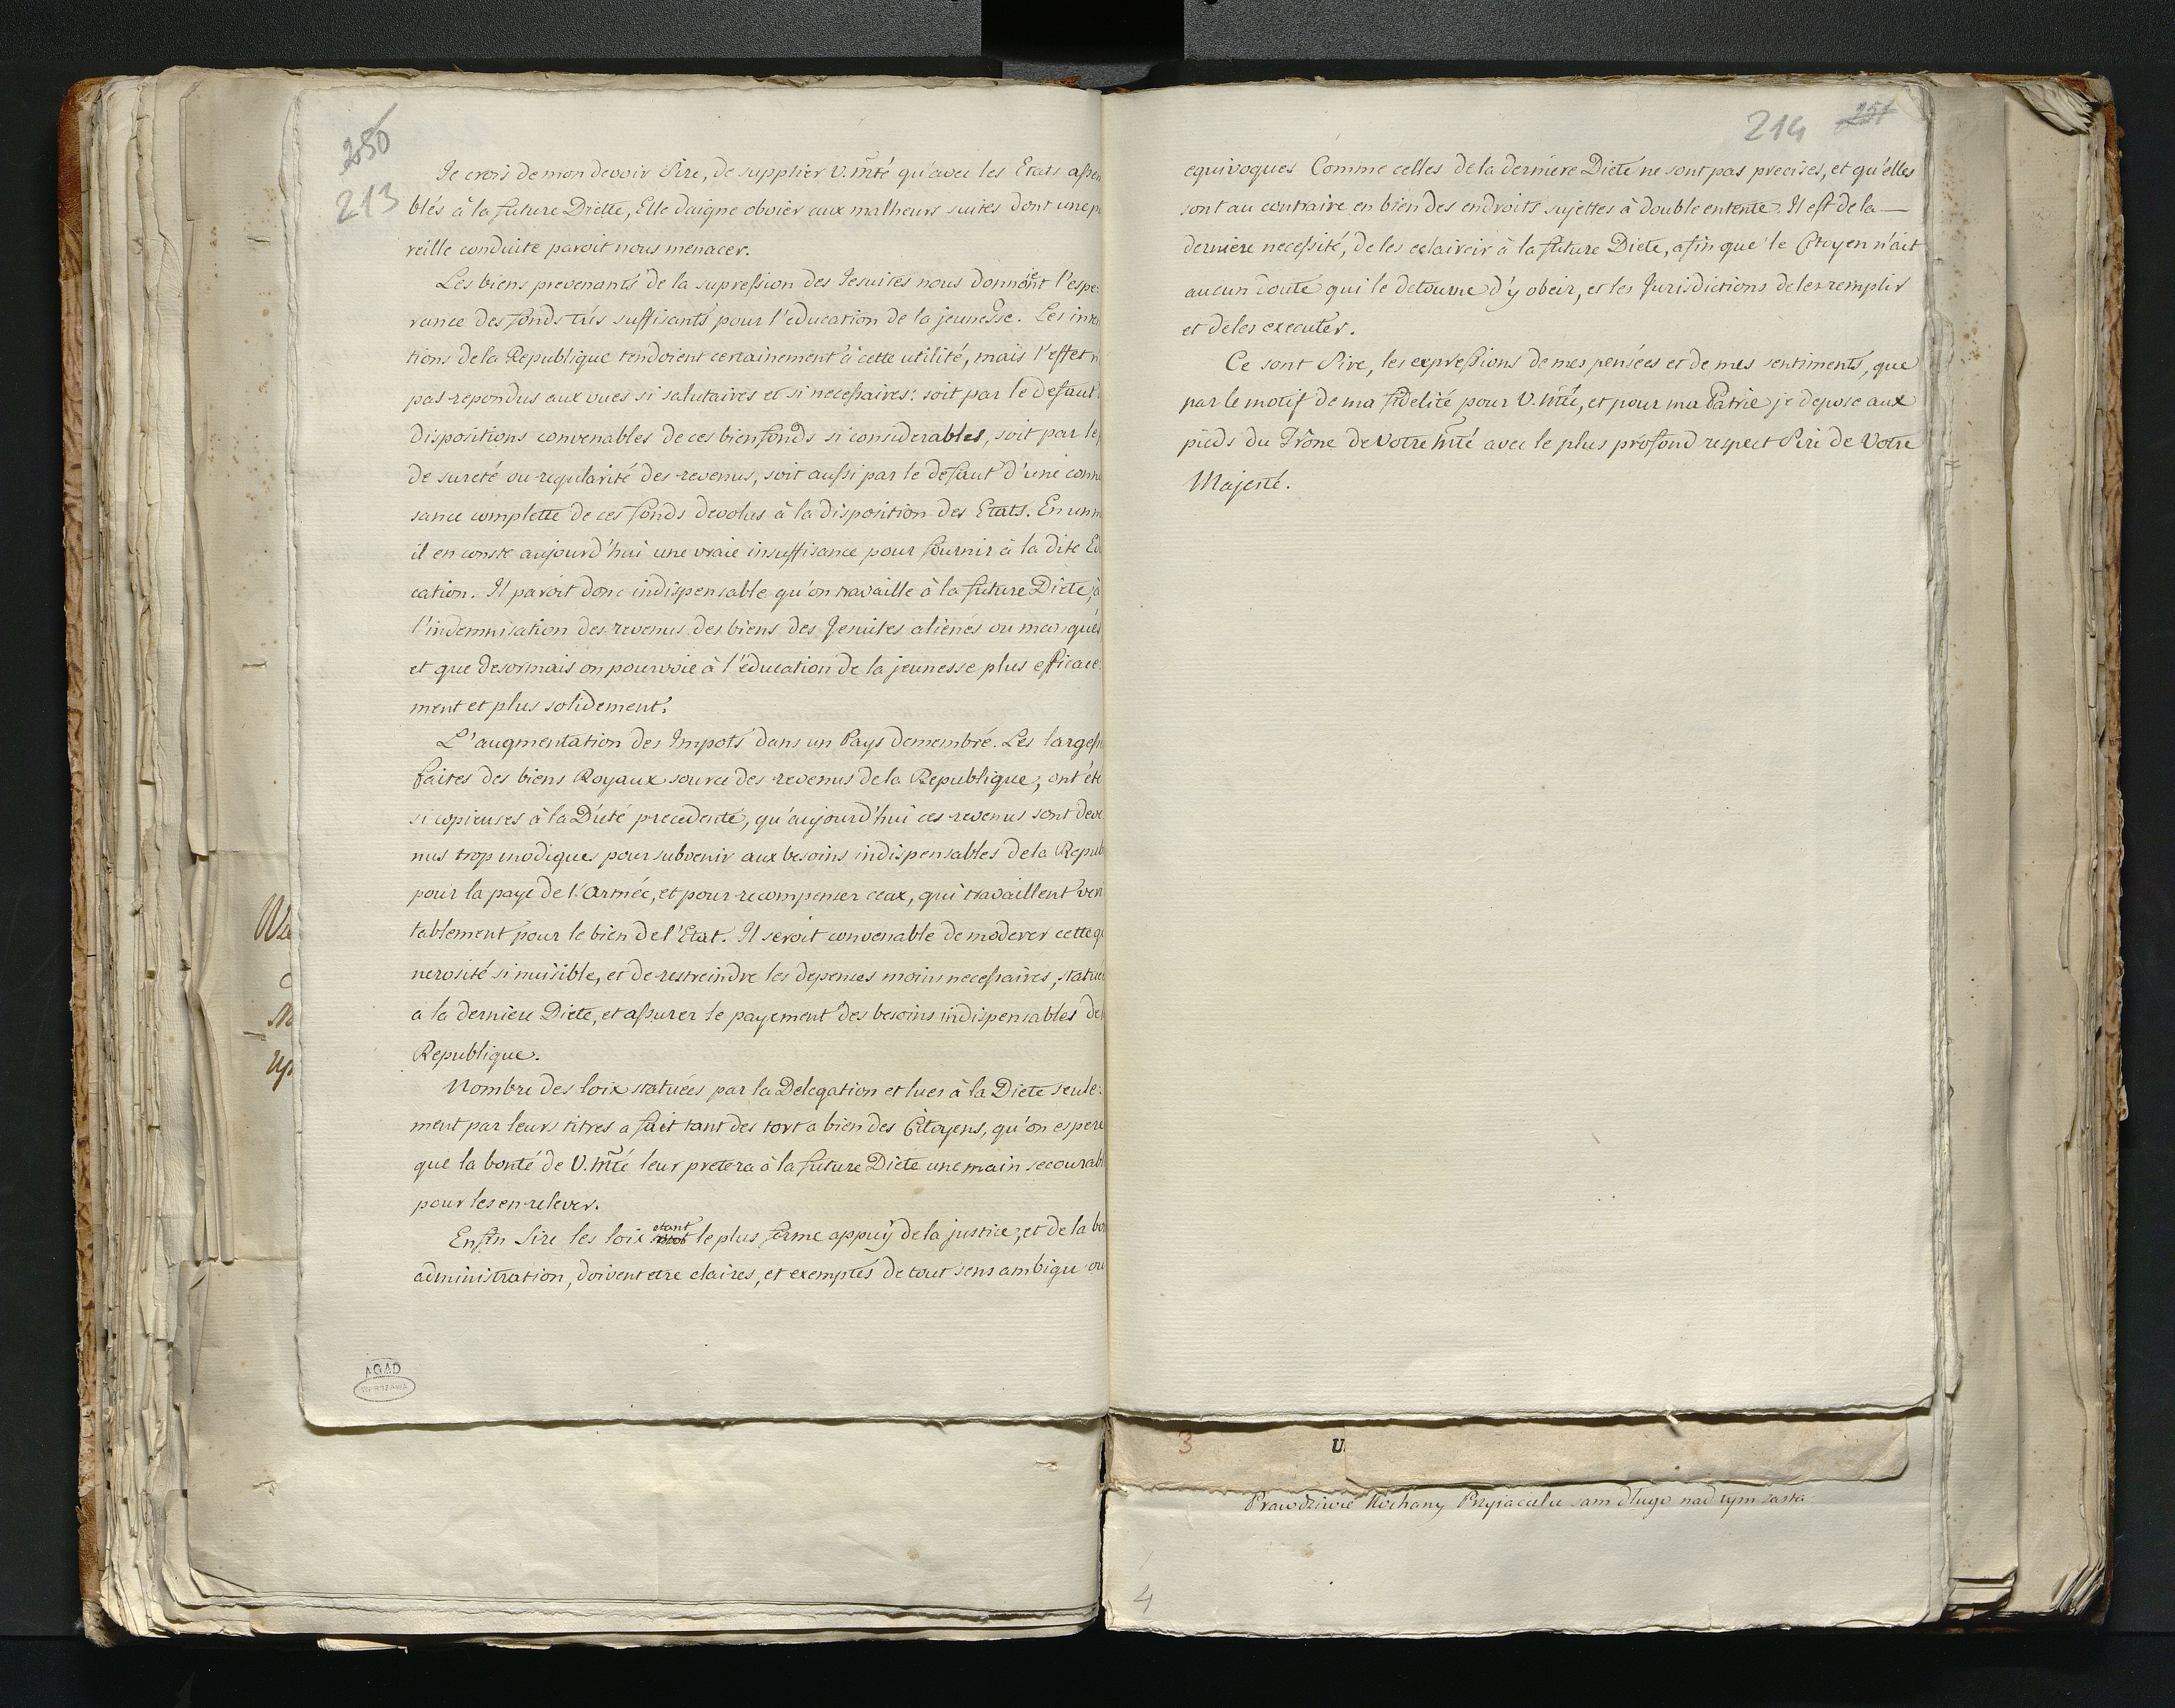 250
213
Je crois de mon devoir Sire, de supplier V. Mté qu'avec les Etats assem
blés à la future Diette, Elle daigne obvier aux malheurs suites dont une p
reille conduite paroit nous menacer.
Les biens provenants de la supression des Jesuites nous donnoient l'espe:
rance des fonds trés suffisants pour l'education de la jeunesse. Les inten
tions de la Republique tendoient certainement à cette utilité, mais l'effet n
pas repondus aux vues si salutaires et si necessaires: soit par le defaut
dispositions convenables de ces bienfonds si considerables, soit par le
de sureté ou regularité des revenus, soit aussi par le defaut d'une conn
sance complette de ces fonds devolus à la disposition des Etats. En un m
il en conste aujourd'hui une vraie insuffisance pour fournir à la dite Edu
cation. Il paroit donc indispensable qu'on travaille à la future Diete, à
l'indemnisation des revenus des biens des Jesuites alienés ou manqués
et que desormais on pourvoie à l'éducation de la jeunesse plus efficace
ment et plus solidement.
L'augmentation des Impots dans un Pays demembré. Les largess
faites des biens Royaux source des revenus de la Republique, ont été
si copieuses à la Diete precedente, qu'aujourd'hui ces revenus sont deve
nus trop modiques pour subvenir aux besoins indispensables de la Repub
pour la paye de l'Armée, et pour recompenser ceux, qui travaillent veri
tablement pour le bien de l'Etat. Il seroit convenable de moderer cette ge
nerosité si nuisible, et de restreindre les depenses moins necessaires, statué
a la derniere Diete, et assurer le payement des besoins indispensables de
Republique.
Nombre des loix statuées par la Delegation et lues à la Diete seule:
ment par leurs titres a fait tant des tort a bien des Citoyens, qu'on espere
que la bonté de V. Mté leur pretera à la future Diete une main secourabl
pour les en relever.
Enfin Sire les loix etant le plus ferme appuÿ de la justice, et de la bo
administration, doivent etre claires, et exemptés de tout sens ambigu ou
AGAD
WARSZAWA
214 251
equivoques Comme celles de la derniere Diete ne sont pas precises, et qu'elles
sont au contraire en bien des endroits sujettes à double entente. Il est de la —
derniere necessité, de les eclaircir à la future Diete, afin que le Citoyen n'ait
aucun doute qui le detourne d'y obeir, et les Jurisdictions de les remplir
et de les executer.
Ce sont Sire, les expressions de mes pensées et de mes sentiments, que
par le motif de ma fidelité pour V. Mté, et pour ma Patrie je depose aux
pieds du Trône de Votre Mté avec le plus profond respect Sire de Votre
Majesté.
3 U.
Prawdziwie Kochany Przyiacielu sam długo nad tym zasta
4